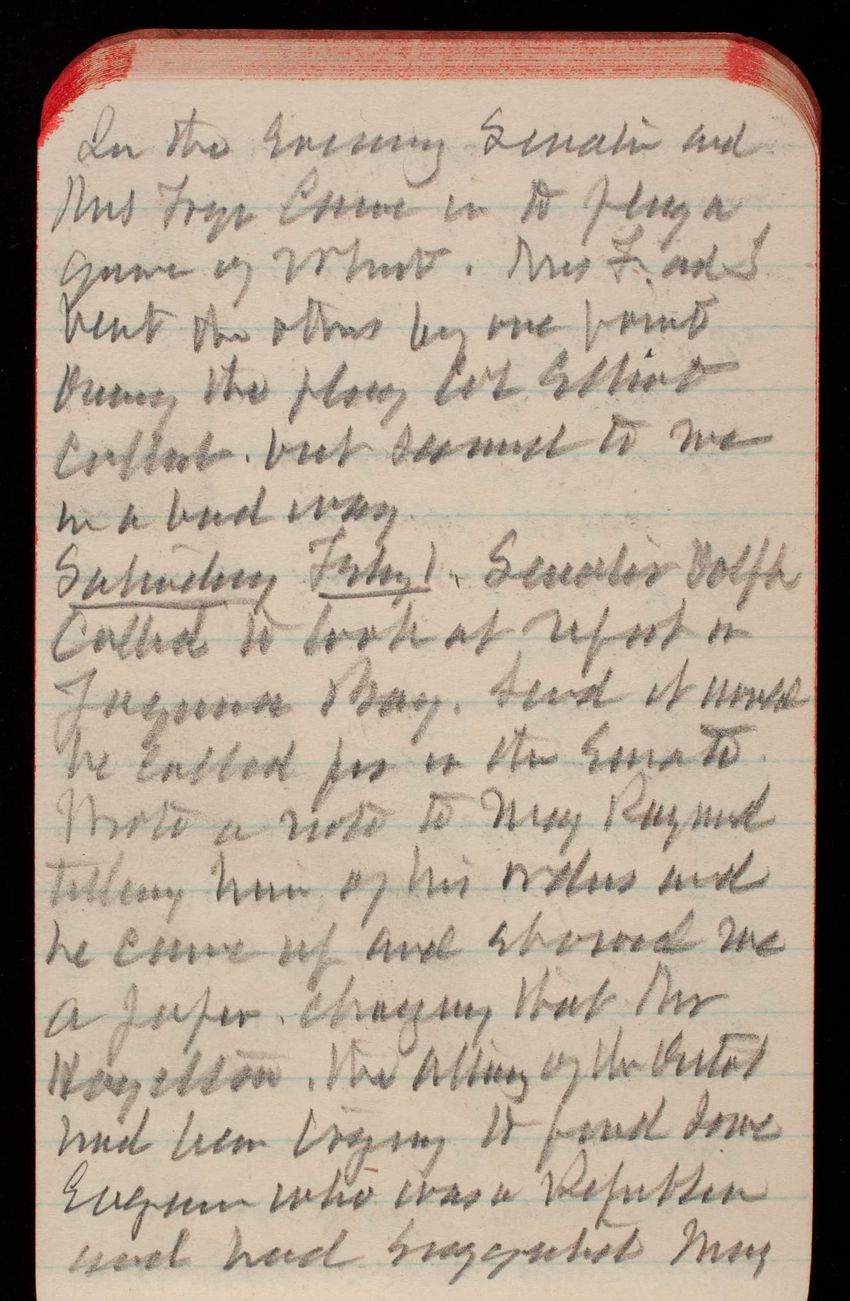 In the Evening Senator and
Mrs Frye Came in to play a
game of Whist. Mrs F. and I
beat the others by one point
During the play Col Elliot
Called. but seemed to me
in a bad way
Saturday Feby 1. Senator Dolph
Called to look at report on
Yaquina Bay. Said it would
be called for in the Senate
Wrote a note to Maj Raymond
telling him of his orders and
he came up and showed me
a paper. charging that Mr
the Attorney of the District
had been trying to find some
Engineer who was a Republican
and had suggested Maj